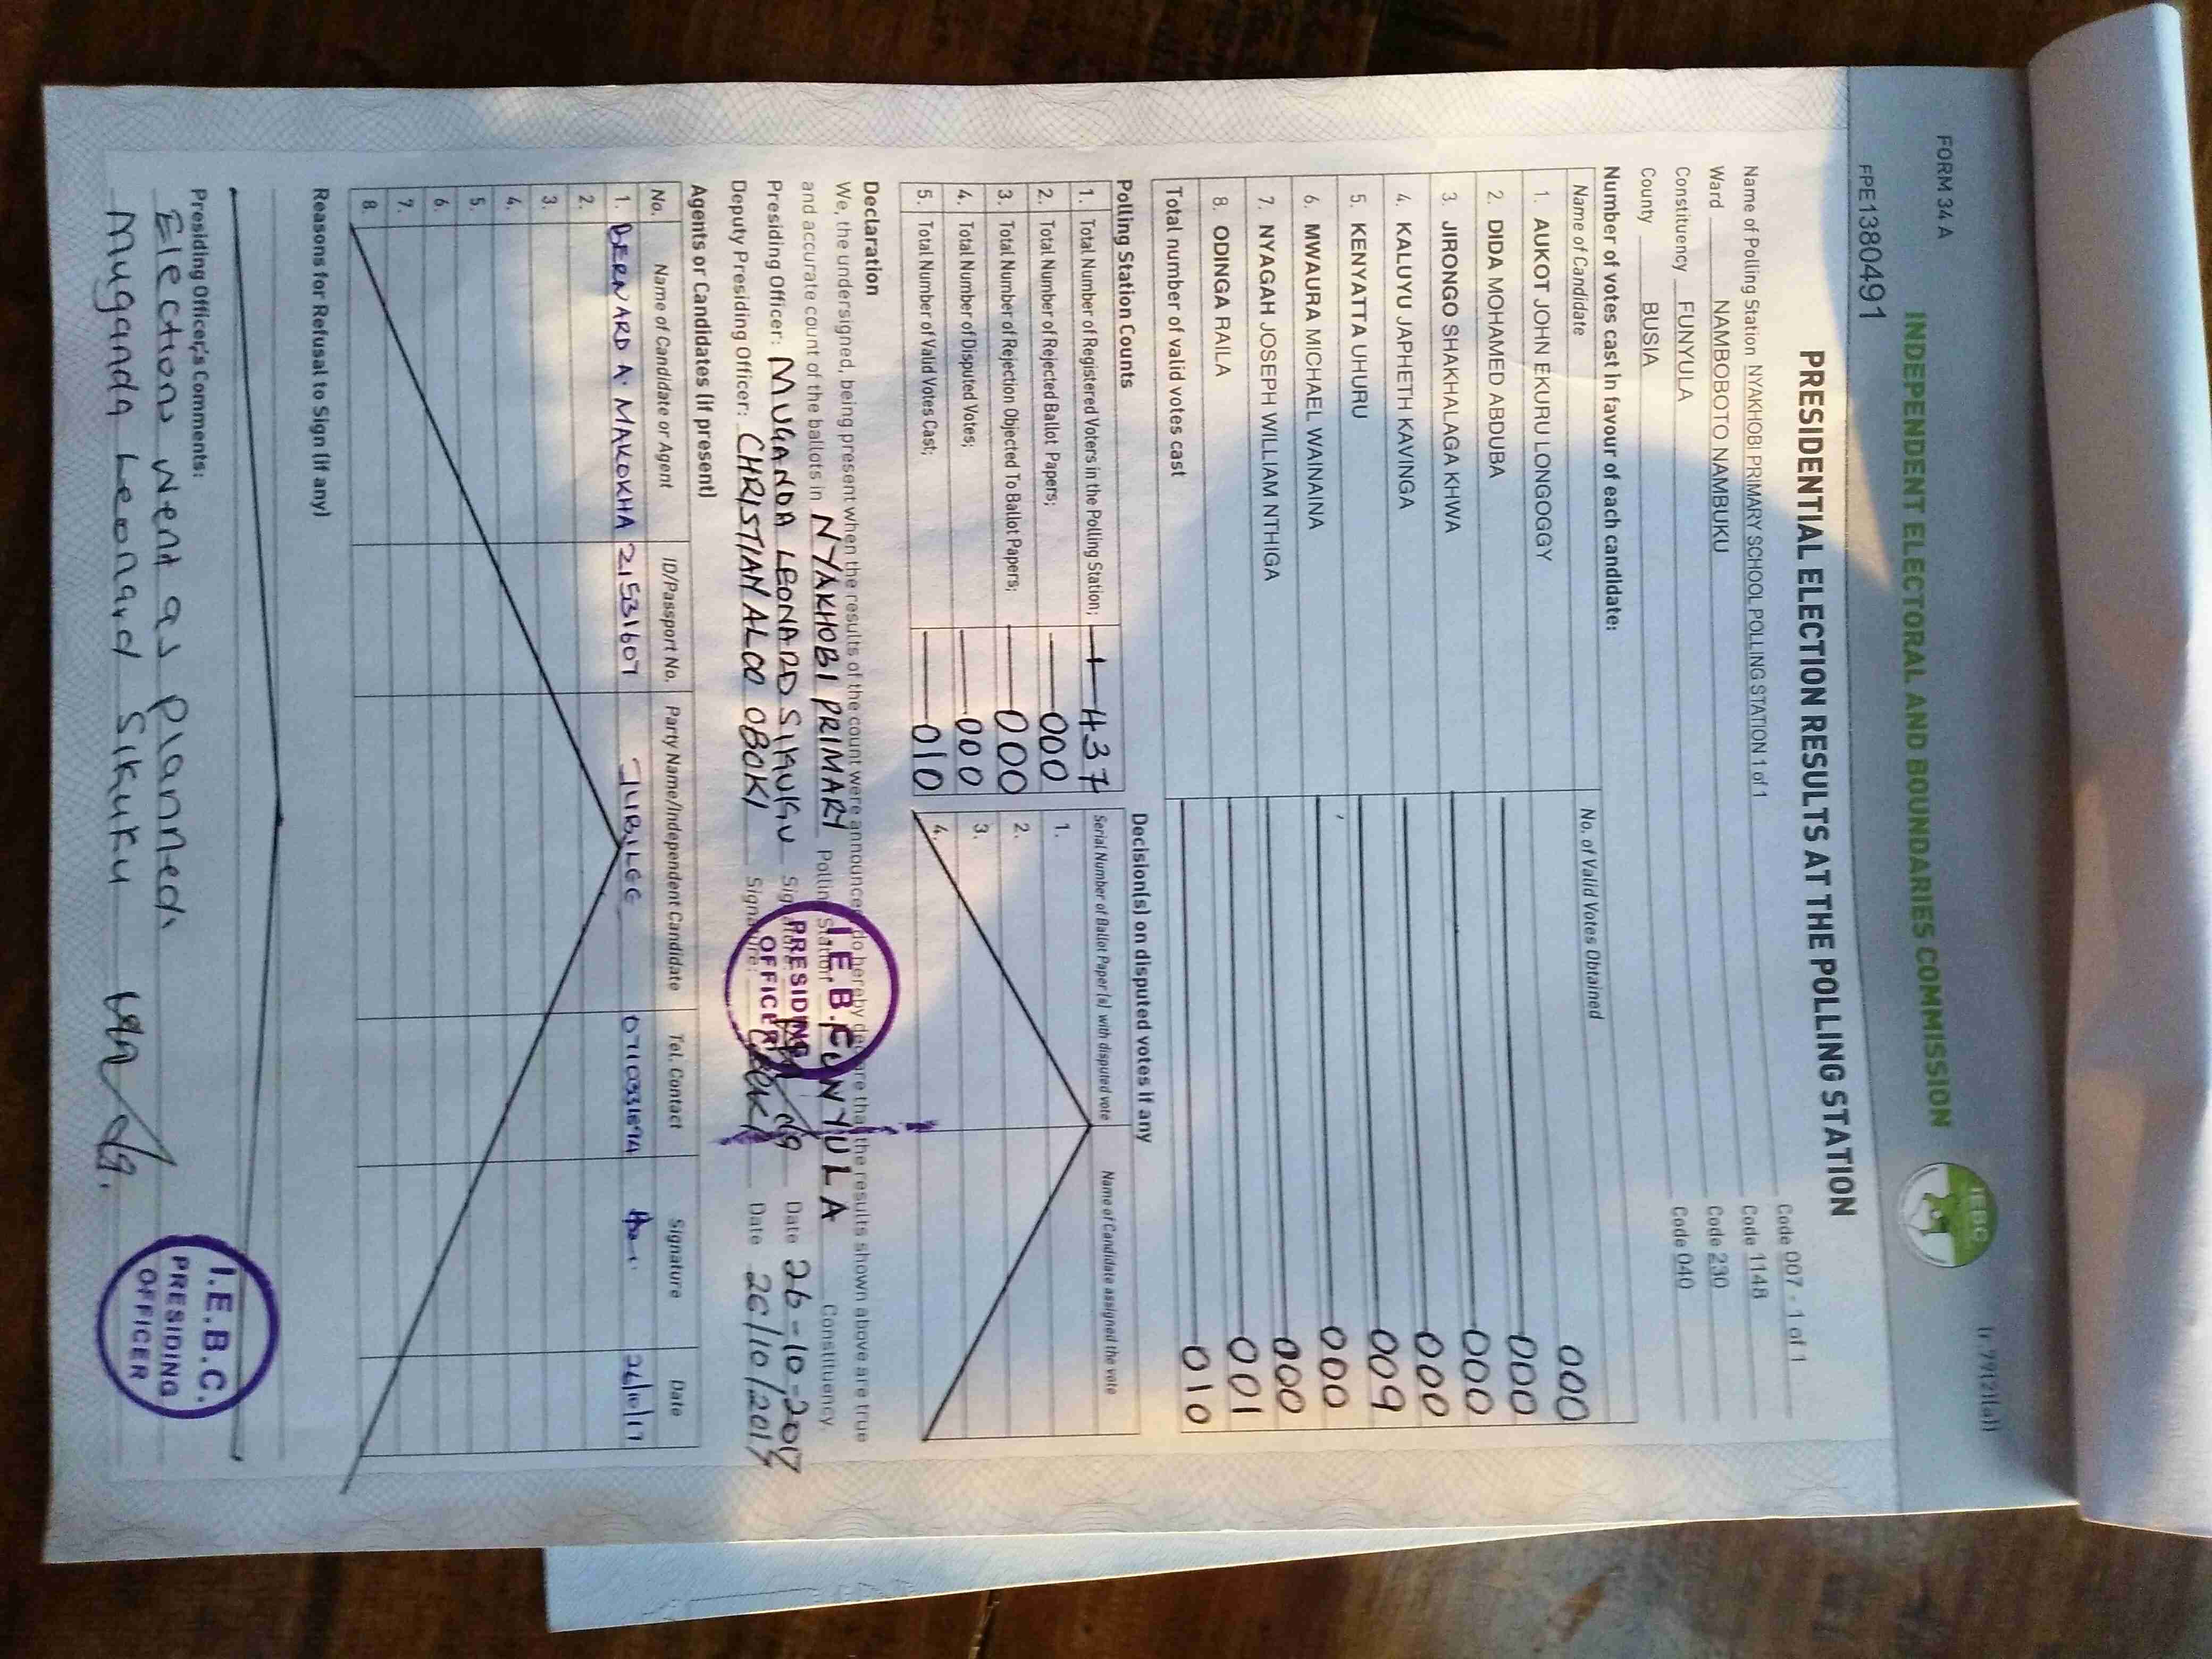 FORM 34A
r. 79(2)(a)
INDEPENDENT ELECTORAL AND BOUNDARIES COMMISSION
IEBC
FPE1380491
PRESIDENTIAL ELECTION RESULTS AT THE POLLING STATION
Name of Polling Station NYAKHOBI PRIMARY SCHOOL POLLING STATION 1 of 1 Code 007 - 1 of 1
Ward NAMBOBOTO NAMBUKU Code 1148
Constituency FUNYULA Code 230
County BUSIA Code 040
Number of votes cast in favour of each candidate:
Name of Candidate No. of Valid Votes Obtained
1. AUKOT JOHN EKURU LONGOGGY 000
2. DIDA MOHAMED ABDUBA 000
3. JIRONGO SHAKHALAGA KHWA 000
4. KALUYU JAPHETH KAVINGA 000
5. KENYATTA UHURU 009
6. MWAURA MICHAEL WAINAINA 000
7. NYAGAH JOSEPH WILLIAM NTHIGA 000
8. ODINGA RAILA 001
Total number of valid votes cast 010
Polling Station Counts
1. Total Number of Registered Voters in the Polling Station; 437
2. Total Number of Rejected Ballot Papers; 000
3. Total Number of Rejection Objected To Ballot Papers; 000
4. Total Number of Disputed Votes; 000
5. Total Number of Valid Votes Cast; 010
Decision(s) on disputed votes if any
Serial Number of Ballot Paper(s) with disputed vote Name of Candidate assigned the vote
1.
2.
3.
4.
Declaration
We, the undersigned, being present when the results of the count were announced, do hereby declare that the results shown above are true
and accurate count of the ballots in NYAKHOBI PRIMARY Polling Station FUNYULA Constituency.
Presiding Officer: MUGANDA LEONARD SIKUKU Signature: Date 26-10-2017
Deputy Presiding Officer: CHRISTIAN ALOO OBOKI Signature: Date 26/10/2017
I.E.B.C.
PRESIDING
OFFICER
Agents or Candidates (if present)
No. Name of Candidate or Agent ID/Passport No. Party Name/Independent Candidate Tel. Contact Signature Date
1. BERNARD A. MAKOKHA 21531607 JUBILEE 26/10/17
2.
3.
4.
5.
6.
7.
8.
Reasons for Refusal to Sign (if any)
Presiding Officer's Comments:
Elections went as planned.
Muganda Leonard Sikuku
I.E.B.C.
PRESIDING
OFFICER